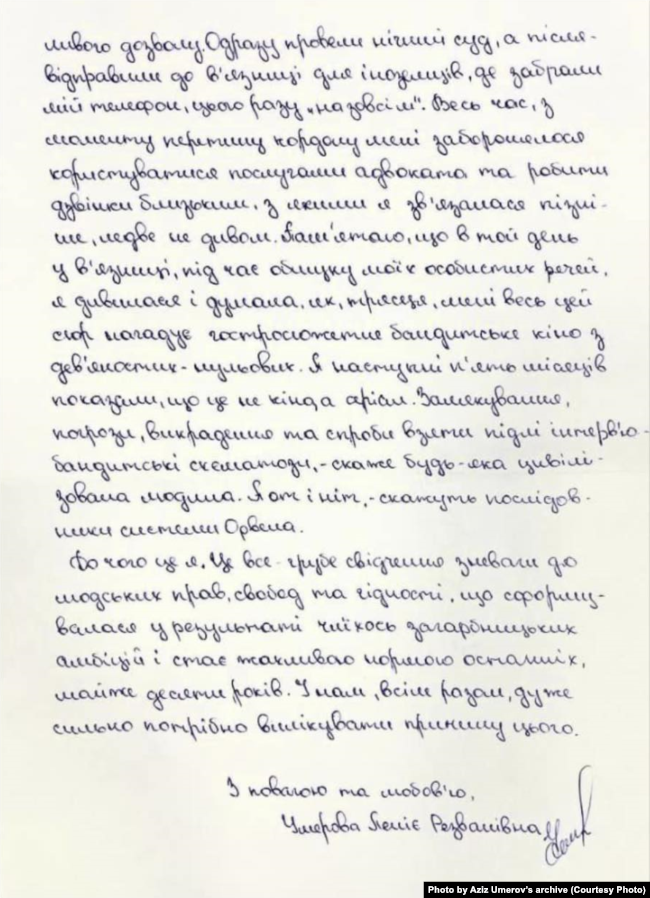 ливого дозволу. Одразу провели нічний суд, а після-
відправили до в'язниці для іноземців, де забрали
мій телефон, цього разу „назовсім". Весь час, з
моменту перетину кордону мені заборонялося
користуватися послугами адвоката та робити
дзвінки близьким, з якими я зв'язалася пізні-
ше, ледве не дивом. Пам'ятаю, що в той день
у в'язниці, під час обшуку моїх особистих речей,
я дивилася і думала, як, трясця, мені весь цей
сюр нагадує гостросюжетне бандитське кіно з
дев'яностих-нульових. Я наступні п'ять місяців
показали, що це не кінд а фріэм. Залякування,
погрози, викрадення та спроби взяти підлі інтерв'ю-
бандитські схематози, - скаже будь-яка цивілі-
зована людина. А от і ніт, - скажуть послідов-
ники системи Орвела.
До чого це я. Це все - грубе свідчення зневаги до
людських прав, свобод та гідності, що сформу-
валася у результаті чиїхось загарбницьких
амбіцій і стає жахливою нормою останніх,
майже десяти років. І нам, всім разом, дуже
сильно потрібно вилікувати причину цього.
З повагою та любов'ю,
Умерова Леніє Резванівна
Photo by Aziz Umerov's archive (Courtesy Photo)